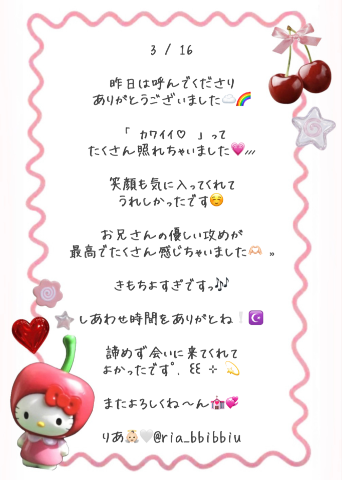 3 / 16
昨日は呼んでくださり
ありがとうございました☁️🌈
「 カワイイ♡ 」って
たくさん照れちゃいました💗〃
笑顔も気に入ってくれて
うれしかったです☺️
お兄さんの優しい攻めが
最高でたくさん感じちゃいました🫶🏻 »
きもちよすぎですっ🎶
しあわせ時間をありがとね❕☪️
諦めず会いに来てくれて
よかったです°. ꒰꒰ ⊹ 💫
またよろしくね〜ん🏩💞
りあ👶🏻🤍@ria_bbibbiu